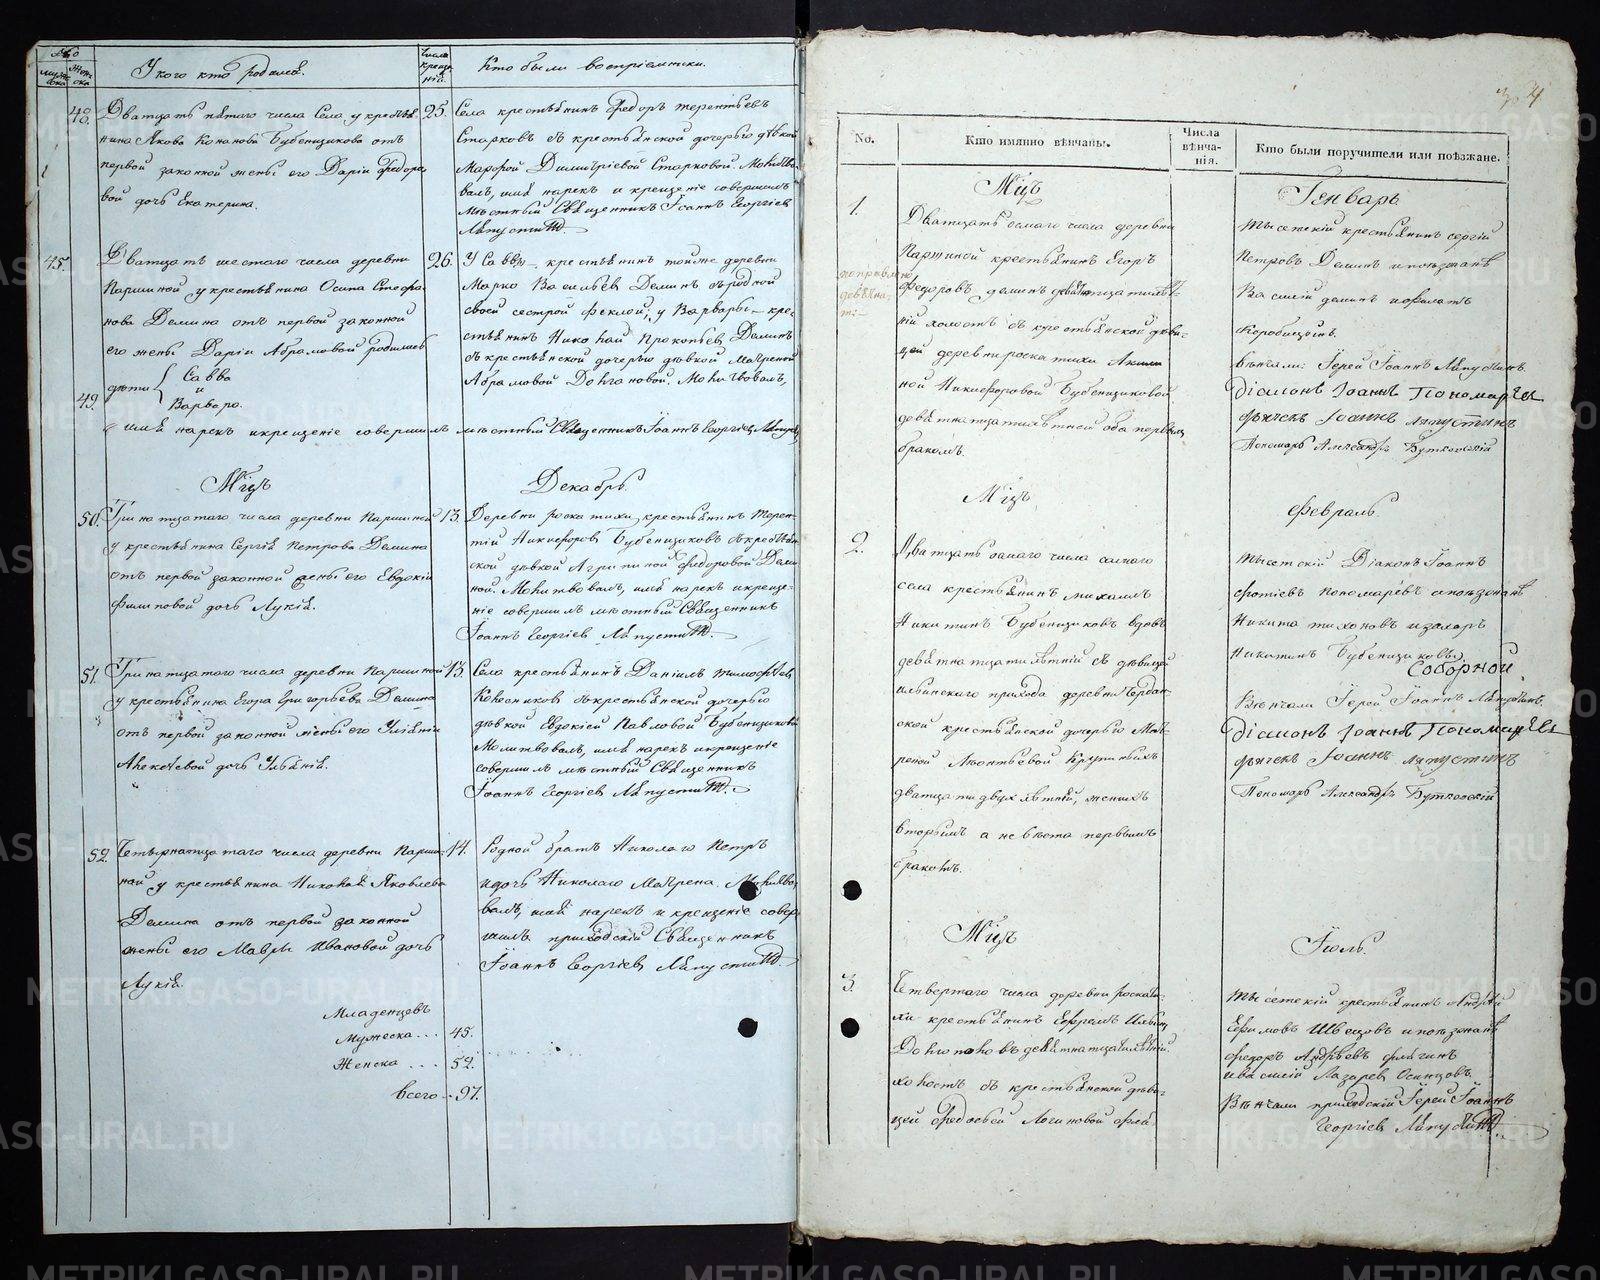 У кого кто родился.
Числа креще-
ній.
Кто были воспріемники.
48. Дватцать пятаго числа Села у крестья
нина Якова Кононова Бубенщикова отъ
первой законной жены его Даріи Федоро
вой дочь Екатерина.
25. Села крестьянинъ Федоръ Терентьевъ
Старковъ съ крестьянской дочерью дѣвкой
Марфой Димитріевой Старковой. Молитво
валъ, имя нарекъ и крещеніе совершилъ
Мѣстный Священникъ Іоаннъ Георгіевъ
Ляпустинъ.
45. Дватцать шестаго числа деревни
Паршиной у крестьянина Осипа Стефа
нова Демина отъ первой законной
его жены Даріи Абрамовой родились
дѣти Савва
и
49. Варвара.
26. У Саввы крестьянинъ тойже деревни
Марко Васильевъ Деминъ съ родной
своей сестрой Феклой, у Варвары крес
тьянинъ Николай Прокопьевъ Деминъ
съ крестьянской дочерью дѣвкой Матреной
Абрамовой Долгановой. Молитвовалъ,
имя нарекъ и крещеніе совершилъ мѣстный Священникъ Іоаннъ Георгіевъ
Мцъ Декабрь.
50. Тринатцатаго числа деревни Паршиной
у крестьянина Сергія Петрова Демина
отъ первой законной жены его Евдокіи
Филиповой дочь Лукія.
13. Деревни Роскатихи крестьянинъ Терен
тій Никифоровъ Бубенщиковъ съ крестьян
ской дѣвкой Агрипиной Федоровой Деми
ной. Молитвовалъ, имя нарекъ и креще
ніе совершилъ мѣстный Священникъ
Іоаннъ Георгіевъ Ляпустинъ.
51. Тринатцатаго числа деревни Паршиной
у крестьянина Егора Григорьева Демина
отъ первой законной жены его Уліяніи
Алексѣевой дочь Уліянія.
13. Села крестьянинъ Даніилъ Тимофѣевъ
Колесниковъ съ крестьянской дочерью
дѣвкой Евдокіей Павловой Бубенщиковой
Молитвовалъ, имя нарекъ и крещеніе
совершилъ мѣстный Священникъ
Іоаннъ Георгіевъ Ляпустинъ.
52. Четырнатцатаго числа деревни Парши
ной у крестьянина Николая Яковлева
Демина отъ первой законной
жены его Мавры Ивановой дочь
Лукія.
14. Родной братъ Николаю Петръ
и дочь Николаю Матрена. Молитво
валъ, имя нарекъ и крещеніе совер
шилъ приходскій Священникъ
Іоаннъ Георгіевъ Ляпустинъ.
Младенцевъ
Мужеска... 45.
Женска.... 52.
Всего.. 97.
No.
Кто имянно вѣнчаны.
Числа
вѣнча-
нія.
Кто были поручители или поѣзжане.
Мцъ Генварь
1. Дватцать осмаго числа деревни
Паршиной крестьянинъ Егоръ
Федоровъ Деминъ девятнатцатилѣт
ній холостъ съ крестьянской дѣви-
цей деревни Роскатихи
ной Никифоровой Бубенщиковой
девятнатцатилѣтней оба первымъ
бракомъ.
Тысятскій крестьянинъ Сергій
Петровъ Деминъ и поѣзжанѣ
Василій Деминъ и Филатъ
Коробицынъ.
Вѣнчали: Іерей Іоаннъ Ляпустинъ.
Діаконъ Іоаннъ Пономаревъ
дьячекъ Іоаннъ Ляпустинъ
Пономарь Александръ Бутковскій
Мцъ Февраль.
2. Дватцать осмаго числа самаго
села крестьянинъ Михаилъ
Никитинъ Бубенщиковъ вдовъ
девятнатцатилѣтній съ дѣвицей
Ильинскаго прихода деревни
ской крестьянской дочерью Мат-
реной Леонтьевой Крутиныхъ
дватцатидвухлѣтней, женихъ
вторымъ а невѣста первымъ
бракомъ.
Тысятскій Діаконъ Іоаннъ
Фотіевъ Пономарёвъ и поѣзжанѣ
Никита Тихоновъ и Захаръ
Никитинъ Бубенщиковы
Соборной
Вѣнчали Іерей Іоаннъ Ляпустинъ.
Діаконъ Іоаннъ Пономаревъ
дьячекъ Іоаннъ Ляпустинъ
Пономарь Александръ Бутковскій
Мцъ Іюль.
3. Четвертаго числа деревни Роскати-
хи крестьянинъ Ефремъ Ильинъ
Долгополовъ девятнатцатилѣтній
холостъ съ крестьянской дѣви-
цей Федосьей Логиновой
Тысятскій крестьянинъ Андрей
Ефимовъ Швецовъ и поѣзжанѣ
Федоръ Андреевъ
и Василій Лазаревъ Осинцовъ.
Вѣнчали приходскій Іерей Іоаннъ
Георгіевъ Ляпустинъ.
METRIKI.GASO-URAL.RU